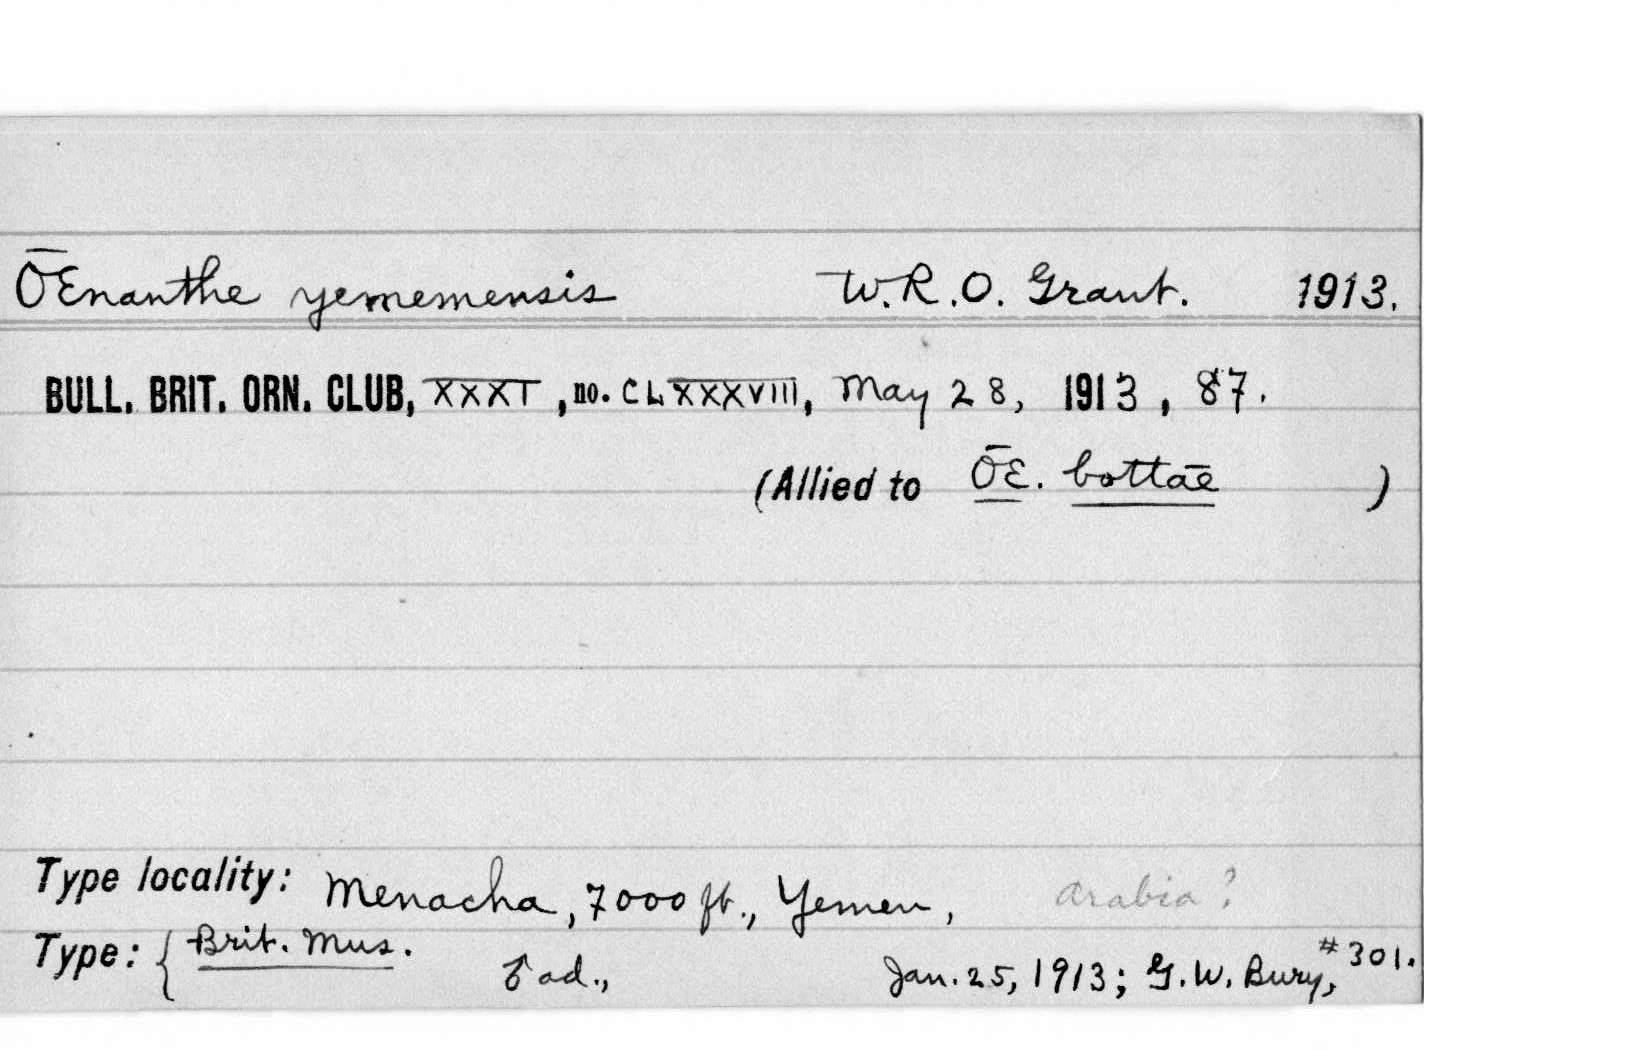 ŌEnanthe yememensis W.R.O. Grant. 1913.
BULL. BRIT. ORN. CLUB, XXXI, no. CLXXXVIII, May 28, 1913, 87.
(Allied to ŌE. bottāe )
Type locality: Menacha, 7000 ft., Yemen, Arabia?
Type: { Brit. Mus. ♂ ad., Jan. 25, 1913; G.W. Bury, #301.